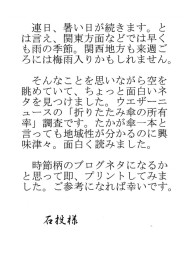 連日、暑い日が続きます。と
は言え、関東方面などでは早く
も雨の季節。関西地方も来週ご
ろには梅雨入りかもしれません。
そんなことを思いながら空を
眺めていて、ちょっと面白いネ
タを見つけました。ウエザーニ
ュースの「折りたたみ傘の所有
率」調査です。たかが傘一本と
言っても地域性が分かるのに興
味津々。面白く読みました。
時節柄のブログネタになるか
と思って即、プリントしてみま
した。ご参考になれば幸いです。